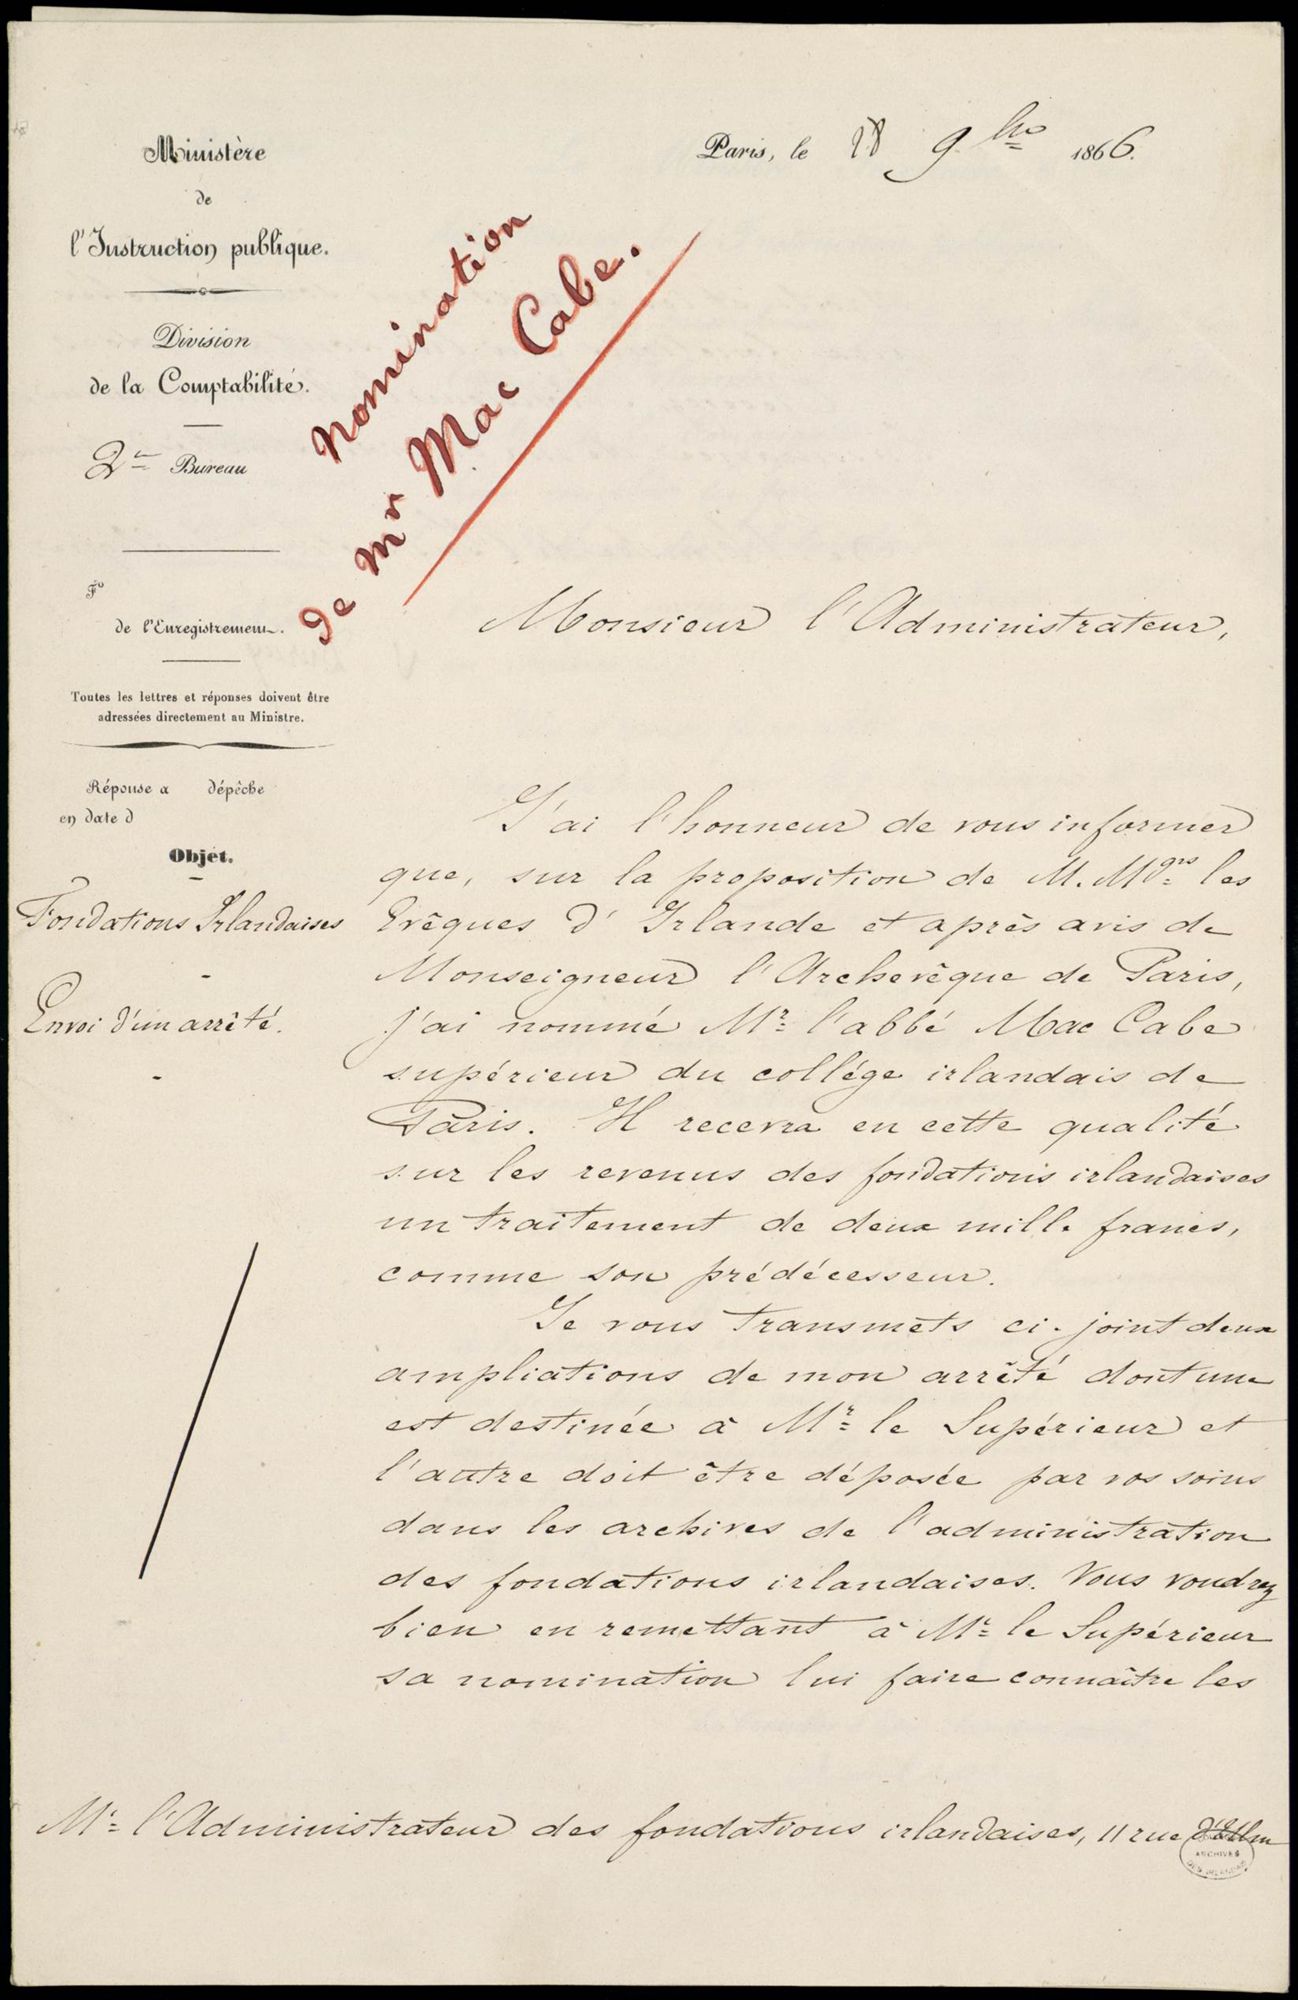 Ministère
de
l'Instruction publique.
Division
de la Comptabilité.
2e Bureau
Fo
de l'Enregistrement.
Toutes les lettres et réponses doivent être
adressées directement au Ministre.
Réponse a dépêche
en date d
Objet.
Fondations Irlandaises
-
Envoi d'un arrêté.
-
Paris, le 28 9bre 1866.
nomination
de Mr Mac Cabe.
Monsieur l'Administrateur,
J'ai l'honneur de vous informer
que, sur la proposition de M. Mgrs les
Evêques d'Irlande et après avis de
Monseigneur l'Archevêque de Paris,
j'ai nommé Mr l'abbé Mac Cabe
supérieur du collége irlandais de
Paris. Il recevra en cette qualité
sur les revenus des fondations irlandaises
un traitement de deux mille francs,
comme son prédécesseur.
Je vous transmets ci-joint deux
ampliations de mon arrêté dont une
est destinée à Mr le Supérieur et
l'autre doit être déposée par vos soins
dans les archives de l'administration
des fondations irlandaises. Vous voudrez
bien en remettant à Mr le Supérieur
sa nomination lui faire connaître les
Mr l'Administrateur des fondations irlandaises, 11 rue d'Ulm
ARCHIVES
DES IRLANDAIS